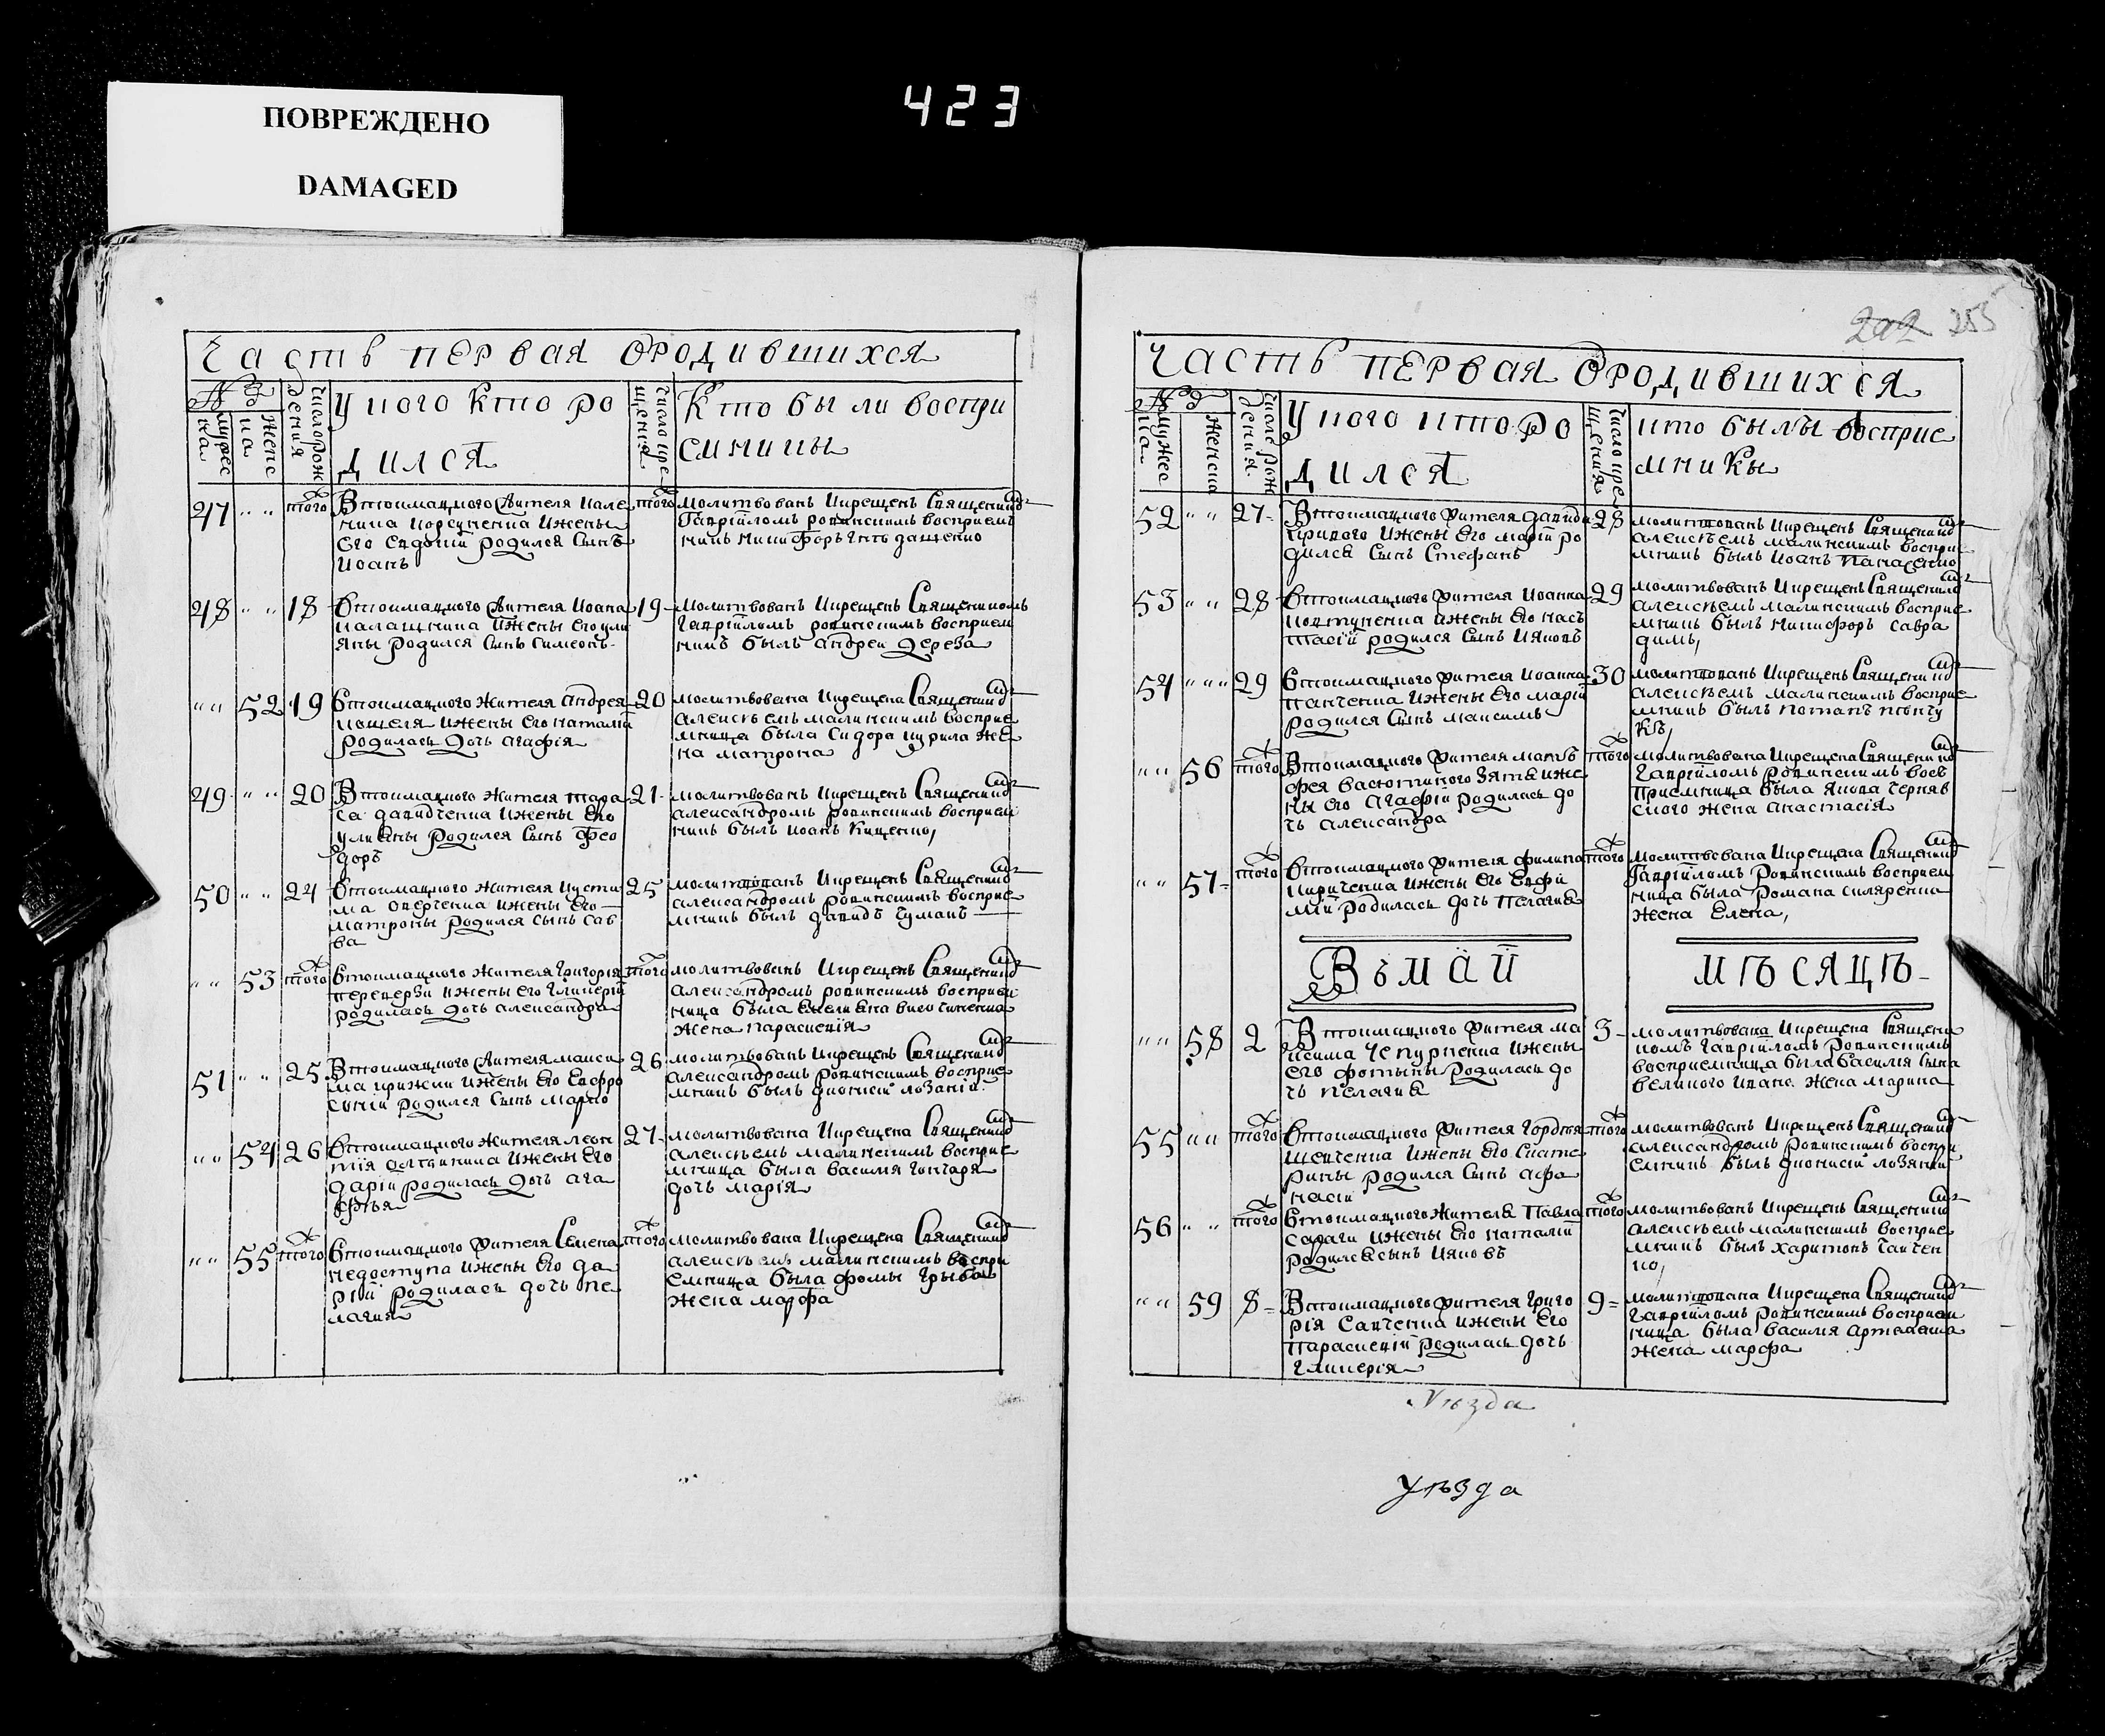 ПОВРЕЖДЕНО
DAMAGED
423
Часть первая ородившихся
№
мужес
ка
женс
ка
Число рож
дения
У кого кто ро
дился
число кре
щения
Кто были воспри
емники
47 " " того
Втоимацкого Жителя
Ижены
Его Евдокїи родился Сынъ
Иоанъ
того
молитвованъ Икрещенъ Священник
Гаврїиломъ ровинскимъ восприем
никъ Никифоръ дащенко
48 " " 18
Втоимацкого Жителя Иоана
калашника Ижены Его ули
яны родился Сынъ Симеонъ
19
молитвованъ Икрещенъ Священникомъ
Гаврїиломъ ровинскимъ восприем
никъ былъ андреи Дереза
" " 52 19
Втоимацкого Жителя андрея
кощеля Ижены Его наталїи
родилась Дочь агафїя
20
молитвована Икрещена Священник
алексѣемъ малинскимъ восприе
мница была Сидора курила же
на матрона
49 " " 20
Втоимацкого Жителя тара
са давидченка Ижены Его
улияны родился Сынъ фео
доръ
21
молитвованъ Икрещенъ Священник
александромъ ровинскимъ восприем
никъ былъ иоанъ Кищенко,
50 " " 24
Втоимацкого Жителя Иусти
ма Ижены Его
матроны родился Сынъ Сав
ва
25
молитвованъ Икрещенъ Священник
александромъ ровинскимъ восприе
мникъ былъ давидъ Чумакъ
" " 53 того
Втоимацкого Жителя Григорїя
переверзи Ижены Его Гликерїи
родилась Дочь александра
того
молитвованъ Икрещенъ Священник
александромъ ровинскимъ восприем
ница была
жена параскевїя
51 " " 25
Втоимацкого Жителя макси
ма крижки Ижены Его Евфро
синїи родился Сынъ марко
26
молитвованъ Икрещенъ Священник
александромъ ровинскимъ восприе
мникъ былъ дионисїи лозанїи
" " 54 26
Втоимацкого Жителя леон
тїя Ижены Его
дарїи родилась Дочь ага
фїя
27
молитвована Икрещена Священник
алексѣемъ малинскимъ восприе
мница была василия гончаря
дочь марїя
" " 55 того
Втоимацкого Жителя Семена
недоступа Ижены Его да
рїи родилась дочь пе
лагия
того
молитвована Икрещена Священник
алексѣемъ малинскимъ воспри
емница была фомы
жена марфа
202 255
Часть первая ородившихся
№
мужес
ка
женска
число рож
дения
У кого кто ро
дился
число кре
щения
кто были восприе
мники
52 " " 27
Втоимацкого Жителя давида
кривого Ижены Его марїи ро
дился Сынъ Стефанъ
28
молитвованъ Икрещенъ Священник
алексѣемъ малинскимъ воспри
мникъ былъ Иоанъ Панасенко
53 " " 28
Втоимацкого Жителя Иоанна
Ижены Его нас
тасїи родился Сынъ Ияковъ
29
молитвованъ Икрещенъ Священник
алексѣемъ малинскимъ восприе
мникъ былъ никифоръ савра
димъ,
54 " " 29
Втоимацкого Жителя Иоанна
панченка Ижены Его марїи
родился Сынъ максимъ
30
молитвованъ Икрещенъ Священник
алексѣемъ малинскимъ восприе
мникъ былъ потапъ
къ,
" " 56 того
Втоимацкого Жителя матв
фея Зятя иже
ны его агафїи родилась до
чь александра
того
молитвована Икрещена Священник
Гаврїиломъ ровинскимъ восп
приемница была Якова черняв
ского жена анастасїя
" " 57
того
Втоимацкого Жителя филипа
киричен­ка Ижены Его Евфи
мїи родилась дочь пелагия
того
молитвована Икрещена Священник
Гаврїиломъ ровинскимъ восприем
ница была романа скляренка
жена Елена,
Въ май
мѣсяцѣ
" " 58 2
Втоимацкого Жителя ма
ксима чепурненка Ижены
его фотыны родилась до
чь пелагия
3
молитвована Икрещена Священи
комъ гаврїиломъ ровинскимъ
восприемница была василия сына
великого Ивана жена марина
55 " " того
Втоимацкого Жителя гордѣя
шевченка Ижены Его Екате
рины родился Сынъ афа
насїи
того
молитвованъ Икрещенъ Священник
александромъ ровинскимъ воспри
емникъ былъ дионисїи лозянїи
56 " " того
Втоимацкого Жителя Павла
сараги Ижены Его наталїи
родился сынъ Ияковъ
того
молитвованъ Икрещенъ Священник
алексѣемъ малинскимъ восприе
мникъ былъ харитонъ
ко,
" " 59 8
Втоимацкого Жителя григо
рїя Савченка Ижены Его
параскевїи родилась дочь
гликерїя
9
молитвована Икрещена Священник
гаврїиломъ ровинскимъ восприем
ница была василия
жена марфа
Уѣзда
уѣзда